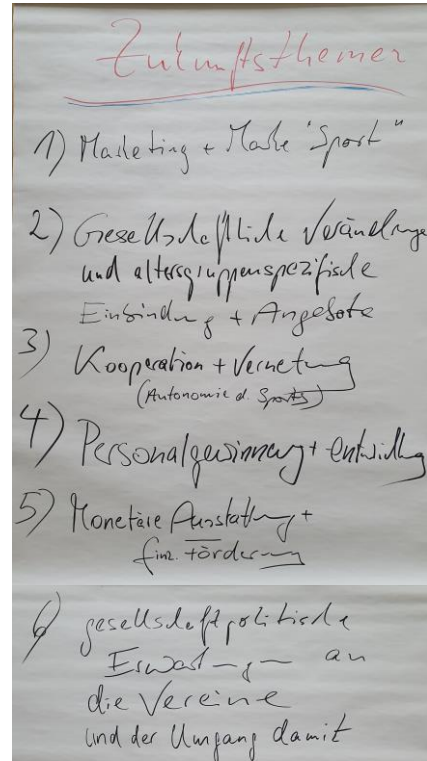 Zukunftsthemen
1) Marketing + Marke "Sport"
2) Gesellschaftliche Veränderungen
und altersgruppenspezifische
Einbindung + Angebote
3) Kooperation + Vernetzung
(Autonomie d. Sports)
4) Personalgewinnung + entwicklung
5) Monetäre Ausstattung +
fin. Förderung
6) gesellschaftpolitische
Erwartungen an
die Vereine
und der Umgang damit